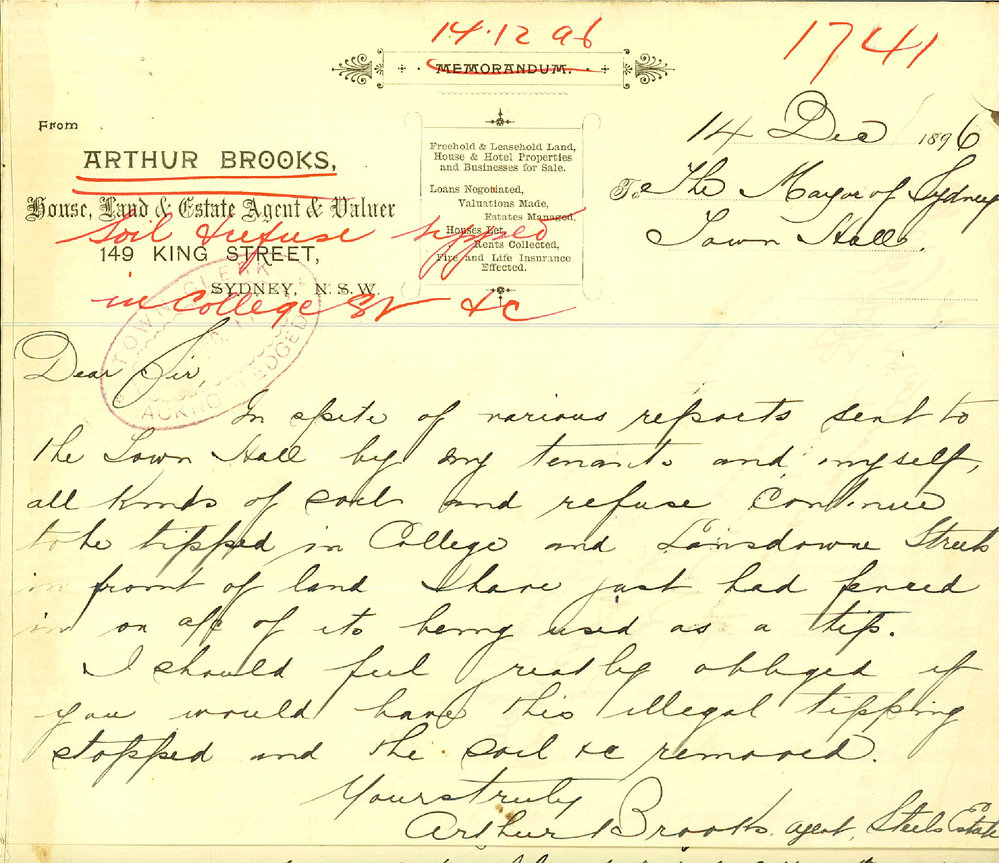 14.12.96
1741
MEMORANDUM.
From
ARTHUR BROOKS,
House, Land & Estate Agent & Valuer
149 KING STREET,
SYDNEY, N.S.W.
Soil & refuse tipped
in College St &c
Freehold & Leasehold Land,
House & Hotel Properties
and Businesses for Sale.
Loans Negotiated,
Valuations Made,
Estates Managed.
Houses Let,
Rents Collected,
Fire and Life Insurance
Effected.
14 Dec 1896
To The Mayor of Sydney
Town Hall.
TOWN CLERK
ACKNOWLEDGED
Dear Sir,
In spite of various reports sent to
the Town Hall by my tenants and myself,
all kinds of soil and refuse continue
to be tipped in College and Lansdowne Streets
in front of land I have just had fenced
in on a/c of its being used as a tip.
I should feel greatly obliged if
you would have this illegal tipping
stopped and the soil &c removed.
Yours truly
Arthur Brooks agent, Steels Estate